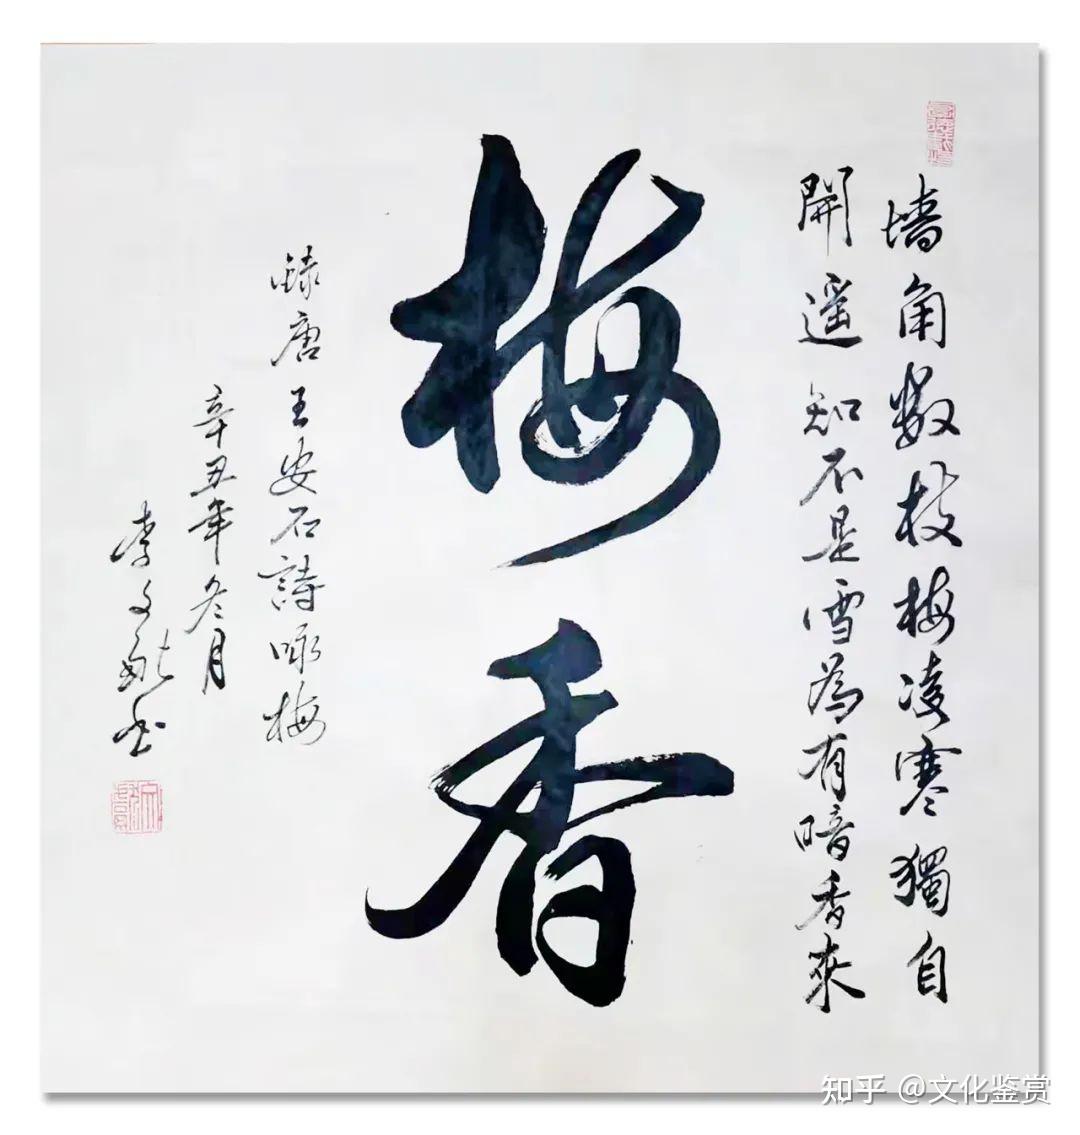 墙角数枝梅凌寒獨自
開遥知不是雪為有暗香来
梅香
録唐王安石詩咏梅
辛丑年冬月
李文
书
知乎 @文化鉴赏